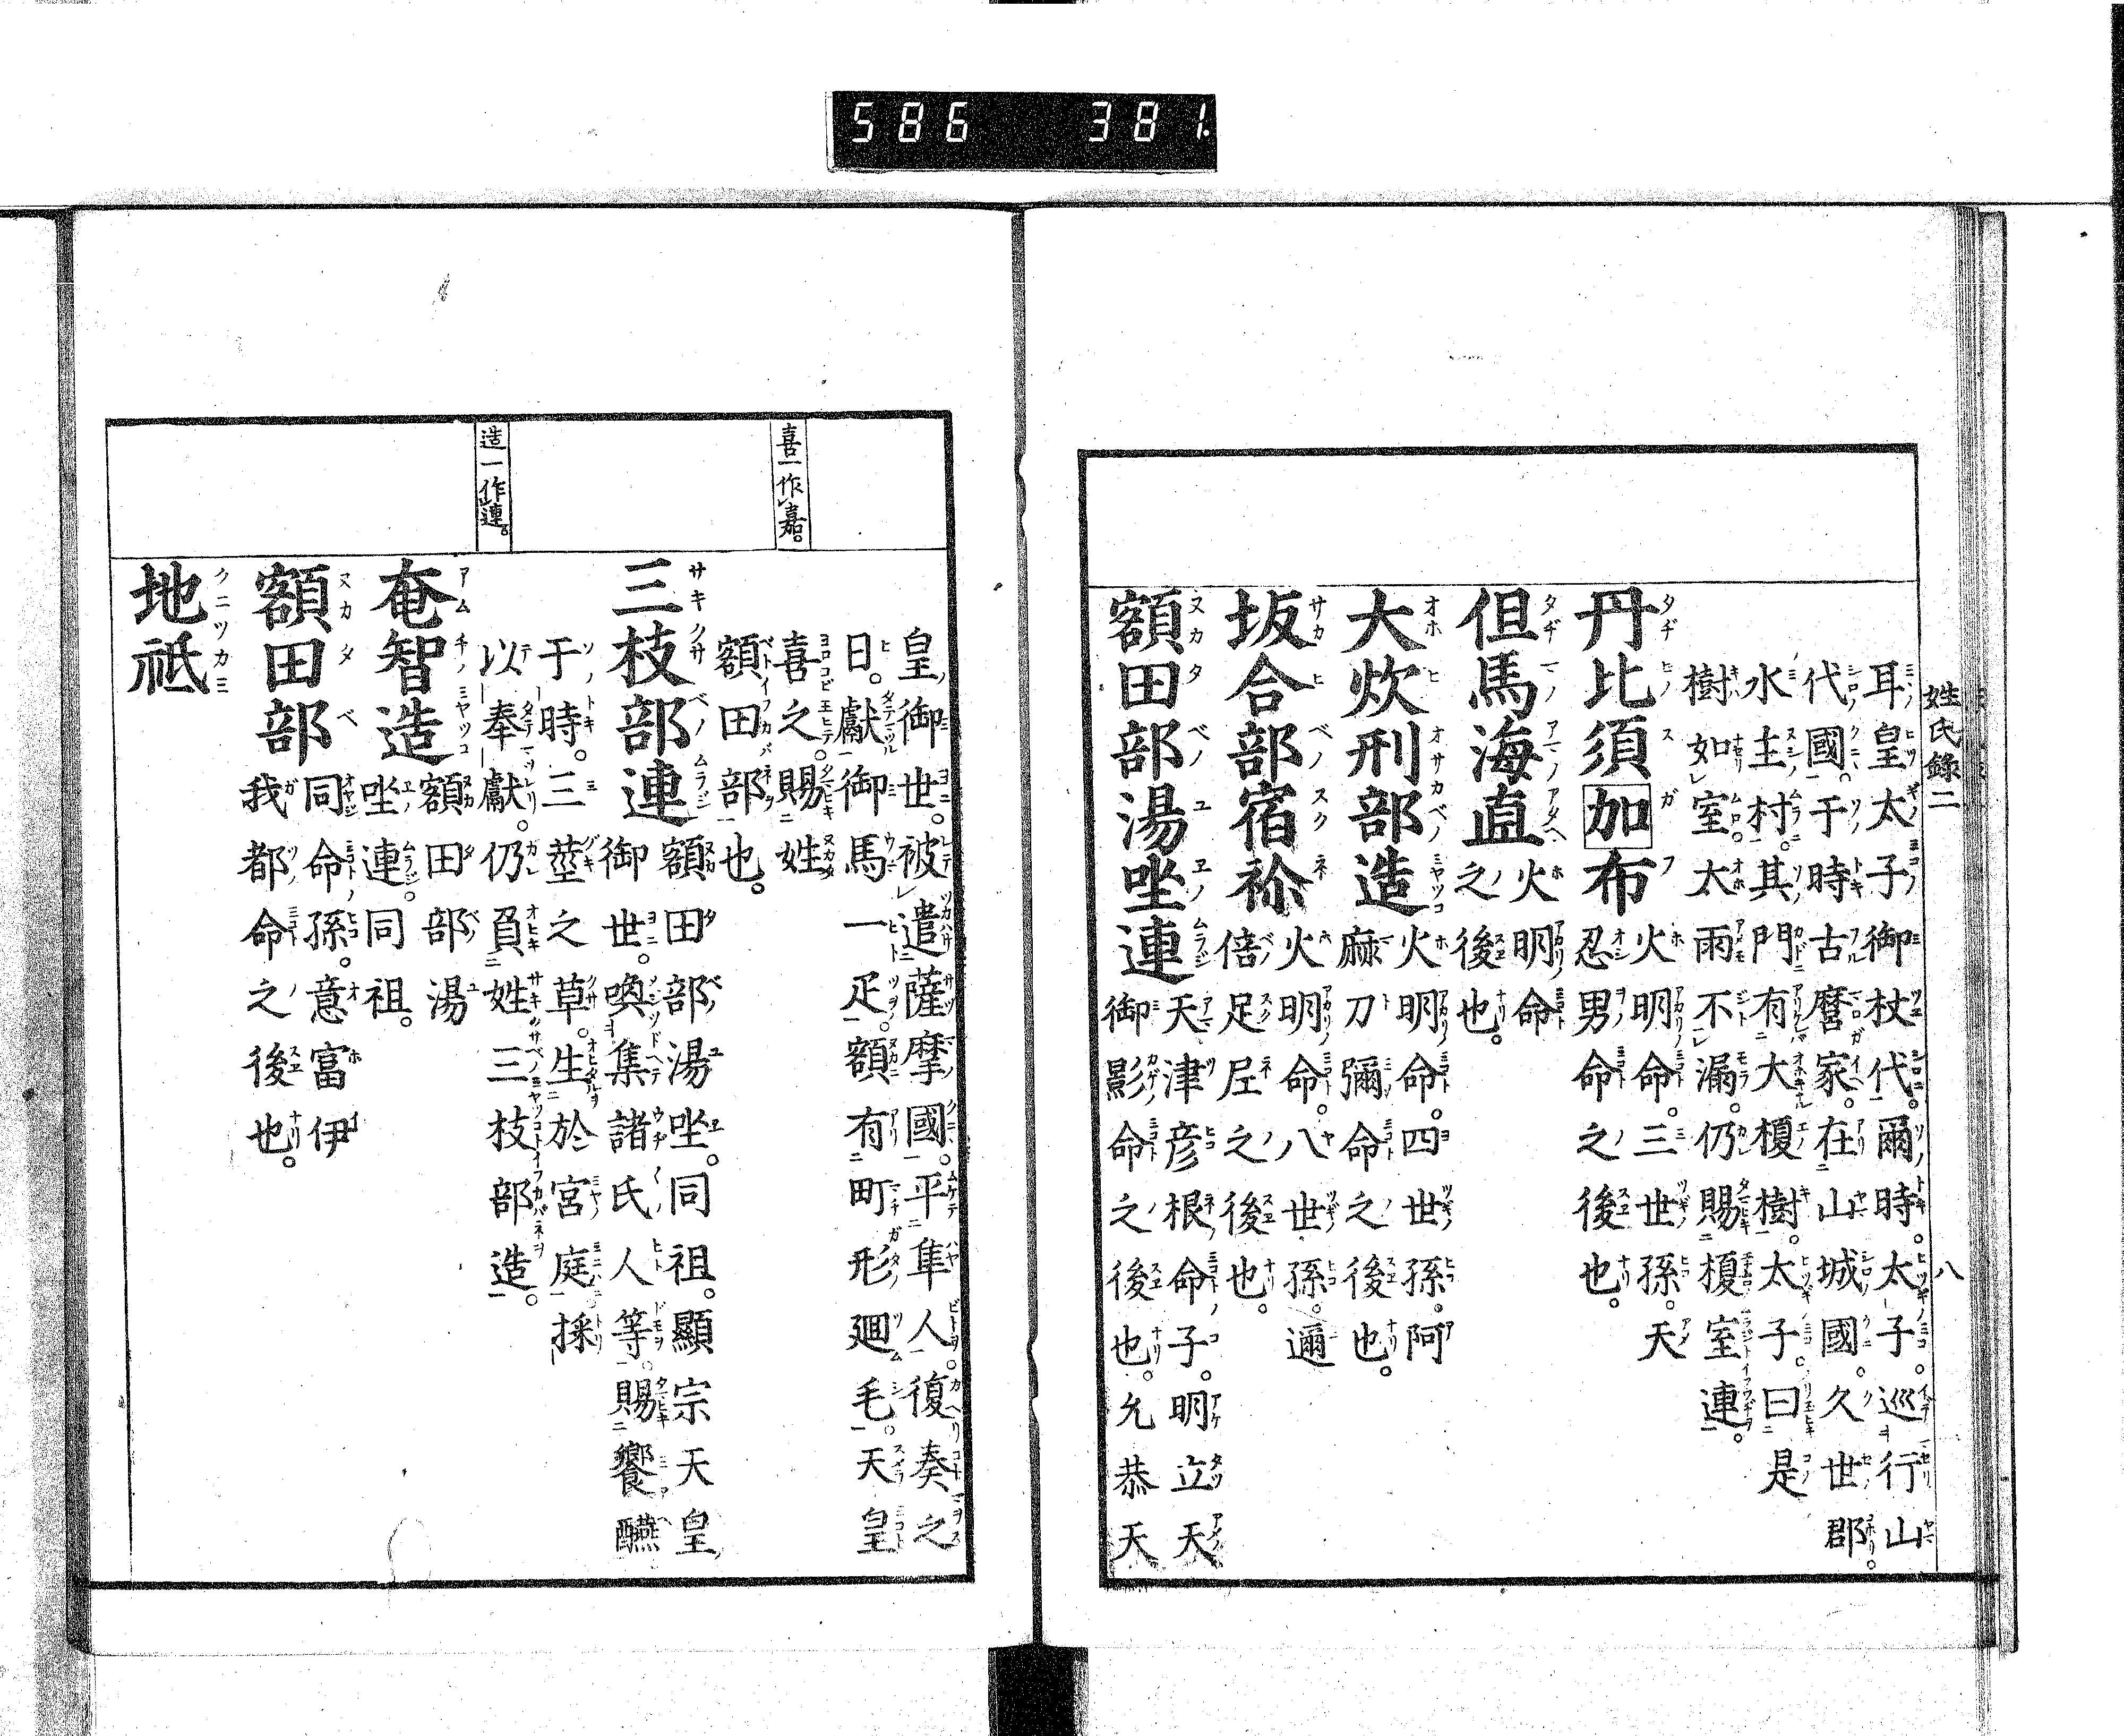 586 381.
姓氏錄二 八
耳皇太子御杖代爾時。太子巡行山
代國。于時古麿家。在山城國。久世郡。
水主村。其門有大榎樹。太子曰是
樹如室。太雨不漏。仍賜榎室連。
丹比須加布 火明命。三世孫。天
忍男命之後也。
但馬海直 火明命
之後也。
大炊刑部造 火明命。四世孫。阿
麻刀彌命之後也。
坂合部宿祢 火明命。八世孫。邇
倍足尼之後也。
額田部湯坐連 天津彦根命子。明立天
御影命之後也。允恭天
皇御世。被遣薩摩國。平隼人。復奏之
日。獻御馬一疋。額有町形廻毛。天皇
喜之。賜姓
額田部也。
喜一作嘉。
三枝部連 額田部湯坐。同祖。顯宗天皇
御世。喚集諸氏人等。賜饗醼
于時。三莖之草。生於宮庭。採
以奉獻。仍負姓三枝部造。
造一作連。
奄智造 額田部湯
坐連。同祖。
額田部 同命孫。意富伊
我都命之後也。
地祇